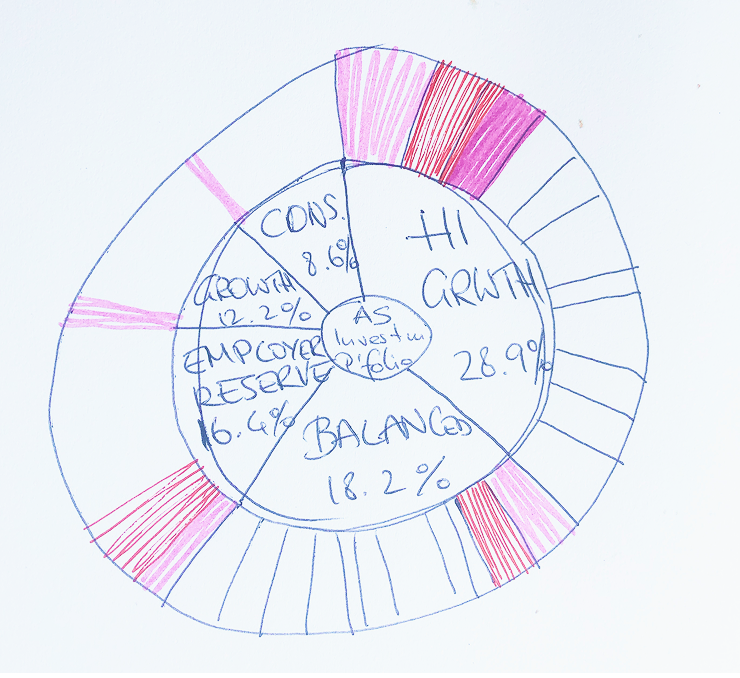 CONS.
8.6%
HI
GRWTH
28.9%
GROWTH
12.2%
AS
Investm
P'folio
EMPLOYER
RESERVE
16.4%
BALANCED
18.2%